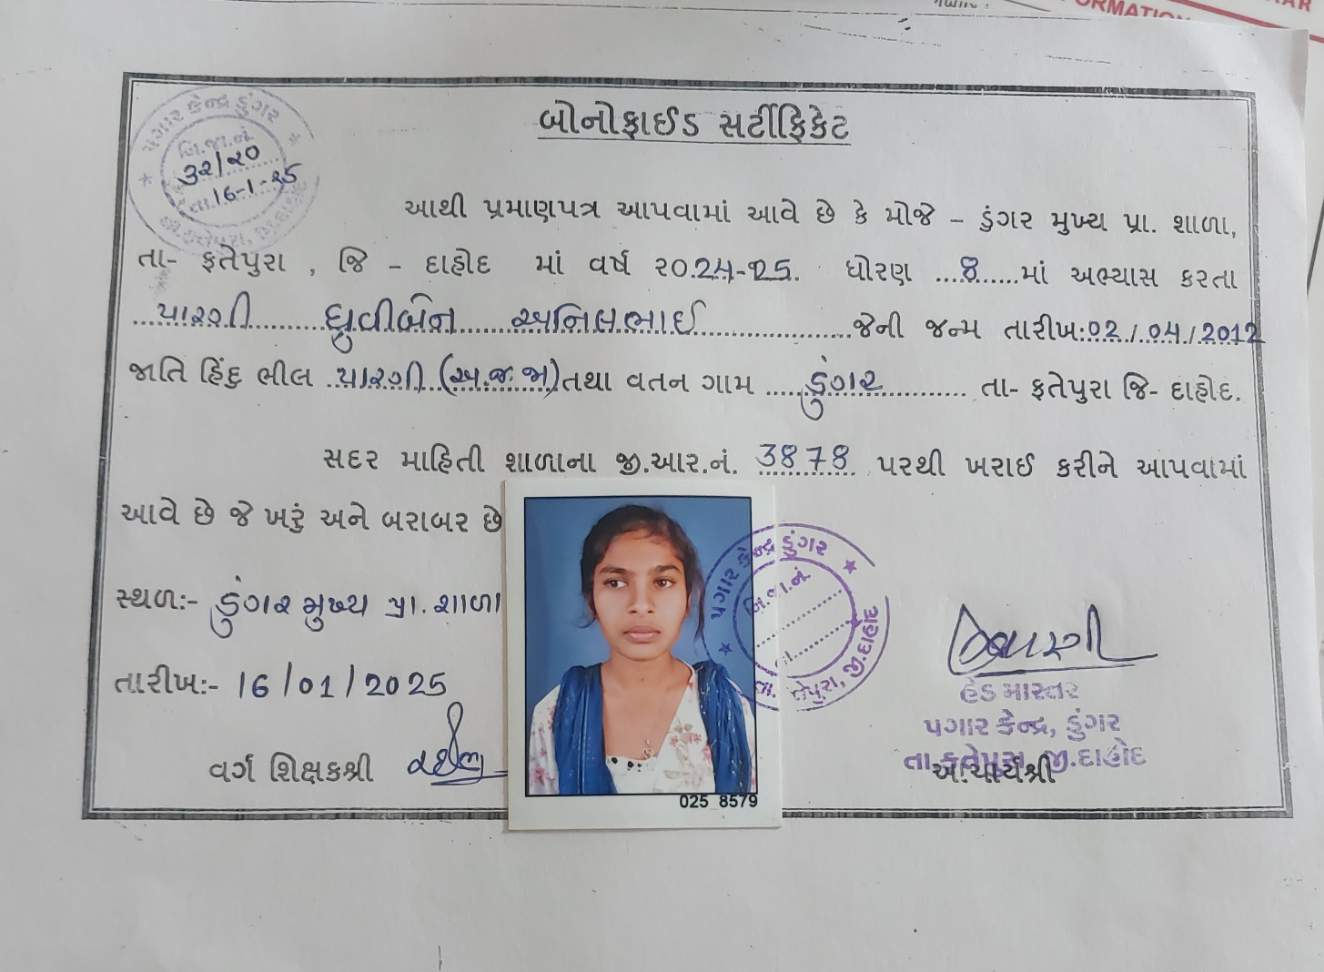 ORMATIO
પગાર કેન્દ્ર ડુંગર
નિ.જા.નં.
૩૨/૨૦
તા.16-1-25
બોનોફાઈડ સર્ટીફિકેટ
આથી પ્રમાણપત્ર આપવામાં આવે છે કે મોજે - ડુંગર મુખ્ય પ્રા. શાળા,
તા- ફતેપુરા , જિ - દાહોદ માં વર્ષ ૨૦.24-25. ધોરણ ...8......માં અભ્યાસ કરતા
પારગી ધ્રુવીબેન અનિલભાઈ જેની જન્મ તારીખ:02/04/2012
જાતિ હિંદુ ભીલ પારગી (અ.જ.જા) તથા વતન ગામ ડુંગર તા- ફતેપુરા જિ- દાહોદ.
સદર માહિતી શાળાના જી.આર.નં. 3878 પરથી ખરાઈ કરીને આપવામાં
આવે છે જે ખરું અને બરાબર છે
સ્થળ:- ડુંગર મુખ્ય પ્રા. શાળા
તારીખ:- 16/01/2025
વર્ગ શિક્ષકશ્રી
025 8579
પગાર કેન્દ્ર ડુંગર
નિ.જા.નં.
જી.દાહોદ
હેડ માસ્તર
પગાર કેન્દ્ર, ડુંગર
તા.ફતેપુરા જી.દાહોદ
આચાર્યશ્રી